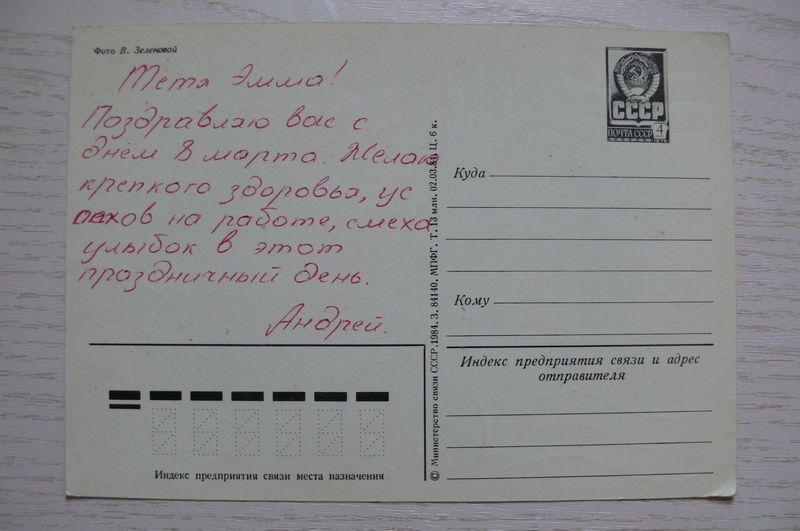 Фото В. Зеленовой
Тётя Эмма!
Поздравляю вас с
днём 8 марта. Желаю
крепкого здоровья, ус
пехов на работе, смеха
улыбок в этот
праздничный день.
Андрей.
Индекс предприятия связи места назначения
© Министерство связи СССР. 1984. З. 84140. МПФГ. Т. 13 млн. 02.03.84 Ц. 6 к.
СССР
ПОЧТА СССР 4
Куда
Кому
Индекс предприятия связи и адрес
отправителя